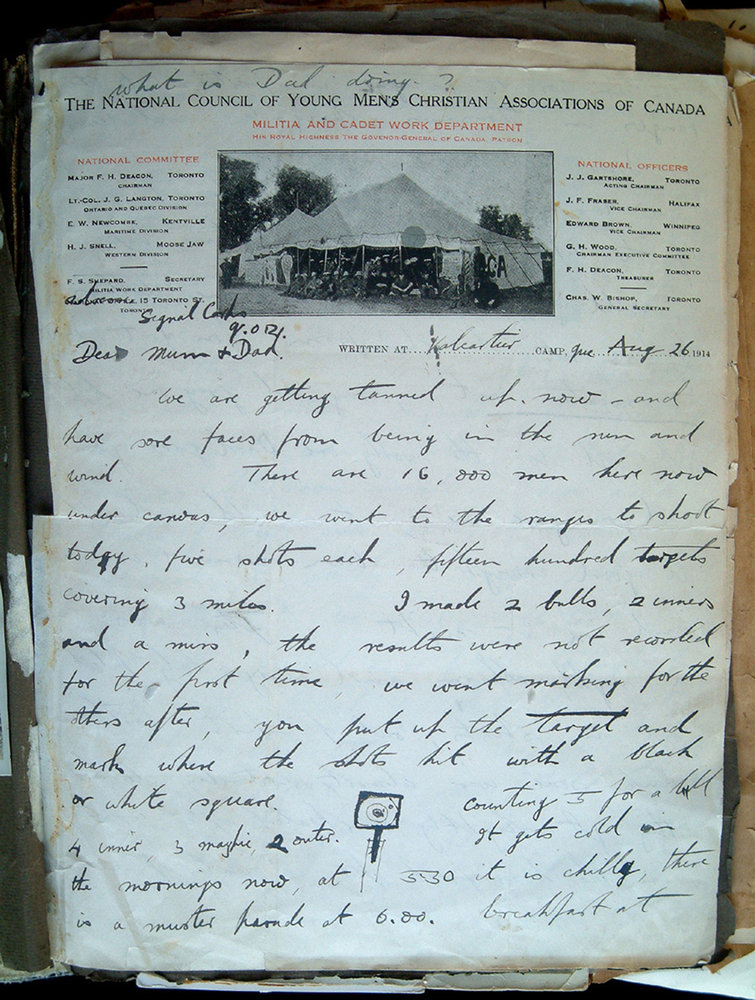 what is Dad doing ?
THE NATIONAL COUNCIL OF YOUNG MEN'S CHRISTIAN ASSOCIATIONS OF CANADA
MILITIA AND CADET WORK DEPARTMENT
HIS ROYAL HIGHNESS THE GOVENOR-GENERAL OF CANADA, PATRON
NATIONAL COMMITTEE
MAJOR F. H. DEACON, TORONTO
CHAIRMAN
LT.-COL. J. G. LANGTON, TORONTO
ONTARIO AND QUEBEC DIVISION
E. W. NEWCOMBE, KENTVILLE
MARITIME DIVISION
H. J. SNELL, MOOSE JAW
WESTERN DIVISION
F. S. SHEPARD, SECRETARY
MILITIA WORK DEPARTMENT
15 TORONTO ST.
TORONTO
NATIONAL OFFICERS
J. J. GARTSHORE, TORONTO
ACTING CHAIRMAN
J. F. FRASER, HALIFAX
VICE CHAIRMAN
EDWARD BROWN, WINNIPEG
VICE CHAIRMAN
G. H. WOOD, TORONTO
CHAIRMAN EXECUTIVE COMMITTEE
F. H. DEACON, TORONTO
TREASURER
CHAS. W. BISHOP, TORONTO
GENERAL SECRETARY
CA
Signal Corps
Q.O.R.
WRITTEN AT Valcartier CAMP, Que Aug 26 1914
Dear Mum & Dad.
We are getting tanned up now - and
have sore faces from being in the sun and
wind. There are 16,000 men here now
under canvas, we went to the ranges to shoot
today. five shots each, fifteen hundred targets
covering 3 miles. I made 2 bulls, 2 inners
and a miss, the results were not recorded
for the first time, we went marking for the
others after, you put up the target and
mark where the shots hit with a black
or white square. counting 5 for a bull
4 inner, 3 magpie, 2 outer. It gets cold in
the mornings now, at 5.30 it is chilly, there
is a muster parade at 6.00. breakfast at